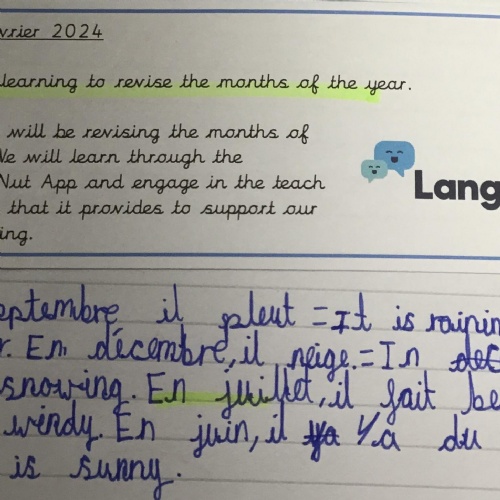 vrier 2024
learning to revise the months of the year.
will be revising the months of
We will learn through the
Nut App and engage in the teach
that it provides to support our
ing.
Lang
eptembre il pleut = It is rainin
r. En décembre, il neige. = In dec
snowing. En juillet, il fait be
windy. En juin, il ya Y/a du
is sunny.